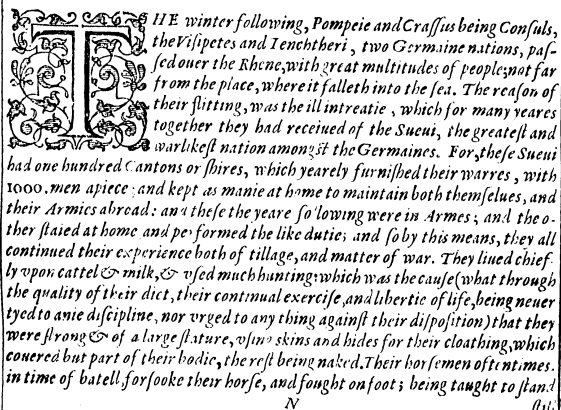 THE winter following, Pompeie and Craſſus being Conſuls,
the Viſipetes and Tenchtheri, two Germaine nations, paſ-
ſed ouer the Rhene, with great multitudes of people; not far
from the place, where it falleth into the ſea. The reaſon of
their flitting, was the ill intreatie, which for many yeares
together they had receiued of the Sueui, the greateſt and
warlikeſt nation amongſt the Germaines. For, theſe Sueui
had one hundred Cantons or ſhires, which yearely furniſhed their warres, with
1000. men apiece; and kept as manie at home to maintain both themſelues, and
their Armies abroad: and theſe the yeare following were in Armes; and the o-
ther ſtaied at home and performed the like dutie; and ſo by this means, they all
continued their experience both of tillage, and matter of war. They liued chief-
ly vpon cattel & milk, & vſed much hunting: which was the cauſe (what through
the quality of their diet, their continual exerciſe, and libertie of life, being neuer
tyed to anie diſcipline, nor vrged to any thing againſt their diſpoſition) that they
were ſtrong & of a large ſtature, vſing skins and hides for their cloathing, which
couered but part of their bodie, the reſt being naked. Their horſemen oftentimes.
in time of batell, forſooke their horſe, and fought on foot; being taught to ſtand
N